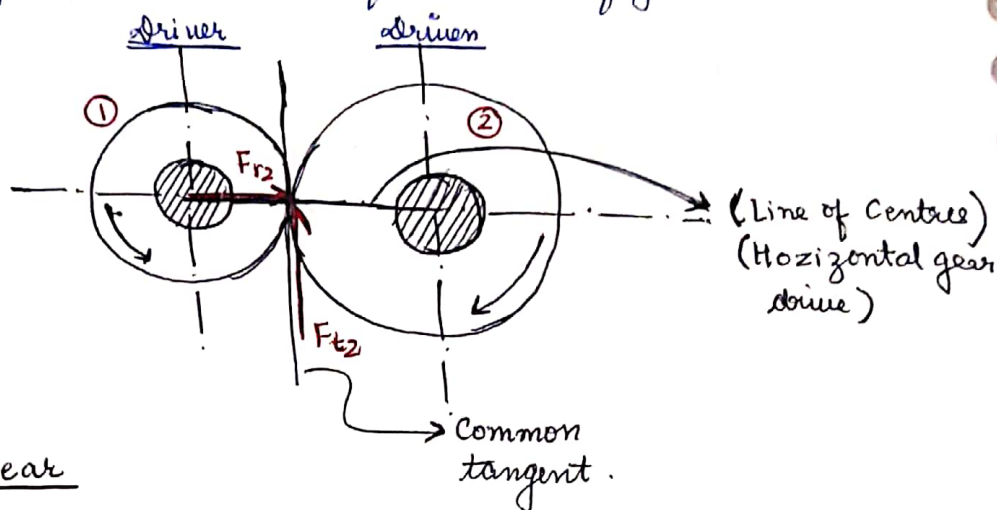 Driver
Driven
①
②
Fr2
(Line of Centres)
(Hozizontal gear
drive)
Ft2
Common
tangent.
ear